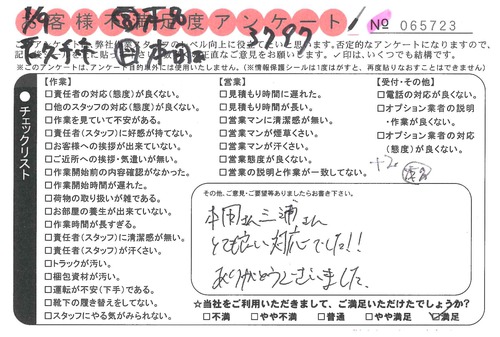 お客様不満足度アンケート
№ 065723
3797
チェックリスト
【作業】
□責任者の対応(態度)が良くない。
□他のスタッフの対応(態度)が良くない。
□作業を見ていて不安がある。
□責任者(スタッフ)に好感が持てない。
□お客様への挨拶が出来ていない。
□ご近所への挨拶・気遣いが無い。
□作業開始前の内容確認がなかった。
□作業開始時間が遅れた。
□荷物の取り扱いが雑である。
□お部屋の養生が出来ていない。
□作業時間が長すぎる。
□責任者(スタッフ)に清潔感が無い。
□責任者(スタッフ)が汗くさい。
□トラックが汚い。
□梱包資材が汚い。
□運転が不安(下手)である。
□靴下の履き替えをしてない。
□スタッフにやる気がみられない。
【営業】
□見積もり時間に遅れた。
□見積もり時間が長い。
□営業マンに清潔感が無い。
□営業マンが煙草くさい。
□営業マンが汗くさい。
□営業態度が良くない。
□営業の説明と作業が一致してない。
【受付・その他】
□電話の対応が良くない。
□オプション業者の説明
・作業が良くない。
□オプション業者の対応
(態度)が良くない。
その他、ご意見・ご要望等ありましたらお書き下さい。
本田さん三浦さん
とても良い対応でした!!
ありがとうございました。
☆当社をご利用いただきまして、ご満足いただけたでしょうか?
□不満 □やや不満 □普通 □やや満足 ☑満足